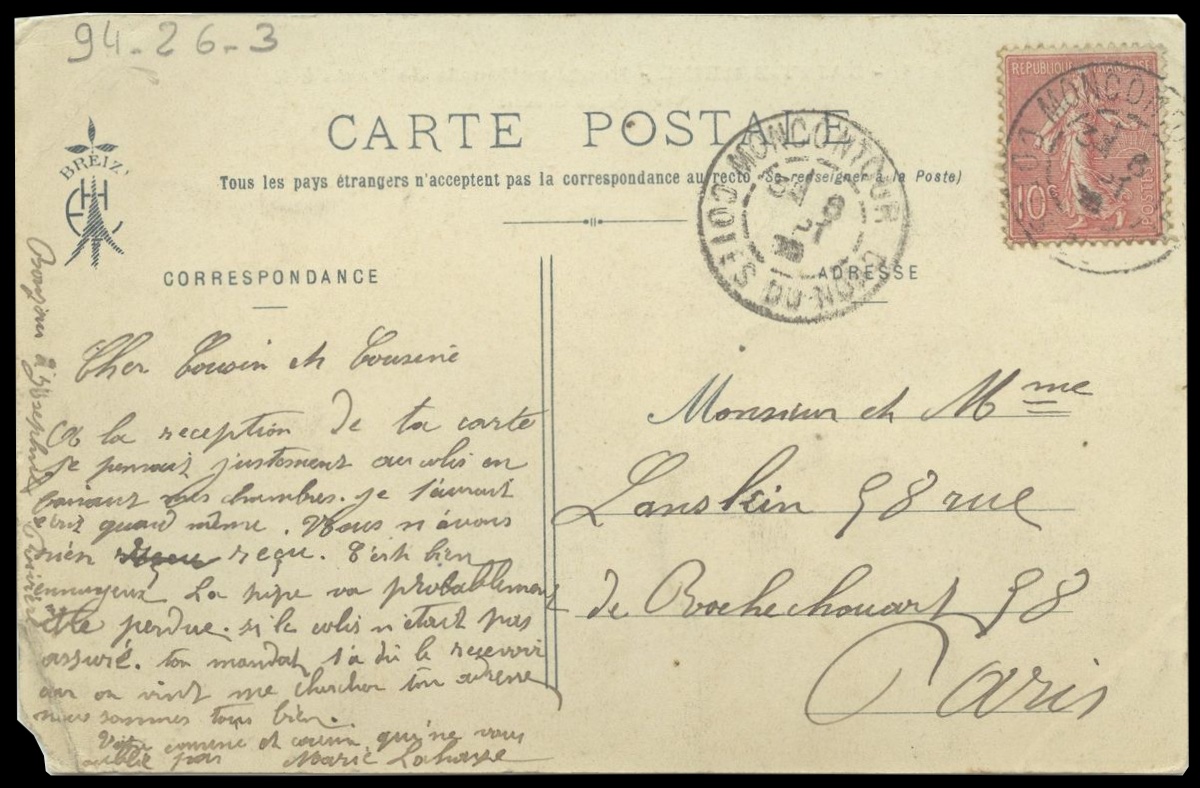 94-26-3
REPUBLIQUE FRANÇAISE
10c
POSTES
CARTE POSTALE
BREIZ'
Tous les pays étrangers n'acceptent pas la correspondance au recto (Se renseigner à la Poste)
MONCONTOUR
COTES DU NORD
CORRESPONDANCE
ADRESSE
Cher Cousin et Cousine
A la reception de ta carte
je pensait justement au colis en
faisant mes chambres. je t'aurait
écrit quand même. Nous n'avons
rien reçu. C'est bien
ennuyeux La pipe va probablement
être perdue. si le colis n'était pas
assuré. ton mandat t'a dû le recevoir
car on vint me chercher ton adresse
nous sommes tous bien.
Votre cousine et cousin qui ne vous
oublie pas Marie Lahaye
Bonjour à Joséphine
Monsieur et Mme
Lanskin 58 rue
de Rochechouart 58
Paris